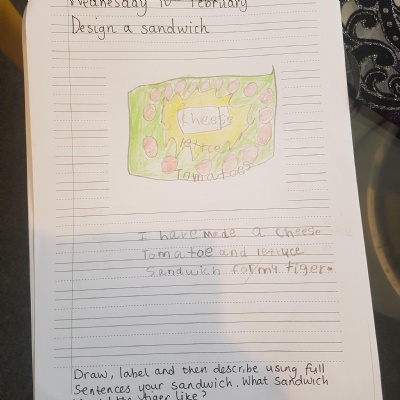 Wednesday 10th February
Design a sandwich
cheese
lettuce
Tomatoes
I have made a cheese
Tomatoe and lettuce
Sandwich for my tiger.
Draw, label and then describe using full
sentences your sandwich. What sandwich
would the tiger like?